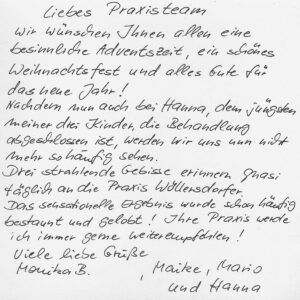 Liebes Praxisteam
wir wünschen Ihnen allen eine
besinnliche Adventszeit, ein schönes
Weihnachtsfest und alles Gute für
das neue Jahr!
Nachdem nun auch bei Hanna, dem jüngsten
meiner drei Kinder, die Behandlung
abgeschlossen ist, werden wir uns nun nicht
mehr so häufig sehen.
Drei strahlende Gebisse erinnern quasi
täglich an die Praxis Wöllersdorfer.
Das sensationelle Ergebnis wurde schon häufig
bestaunt und gelobt! Ihre Praxis werde
ich immer gerne weiterempfehlen!
Viele liebe Grüße
Monika B., Maike, Mario
und Hanna